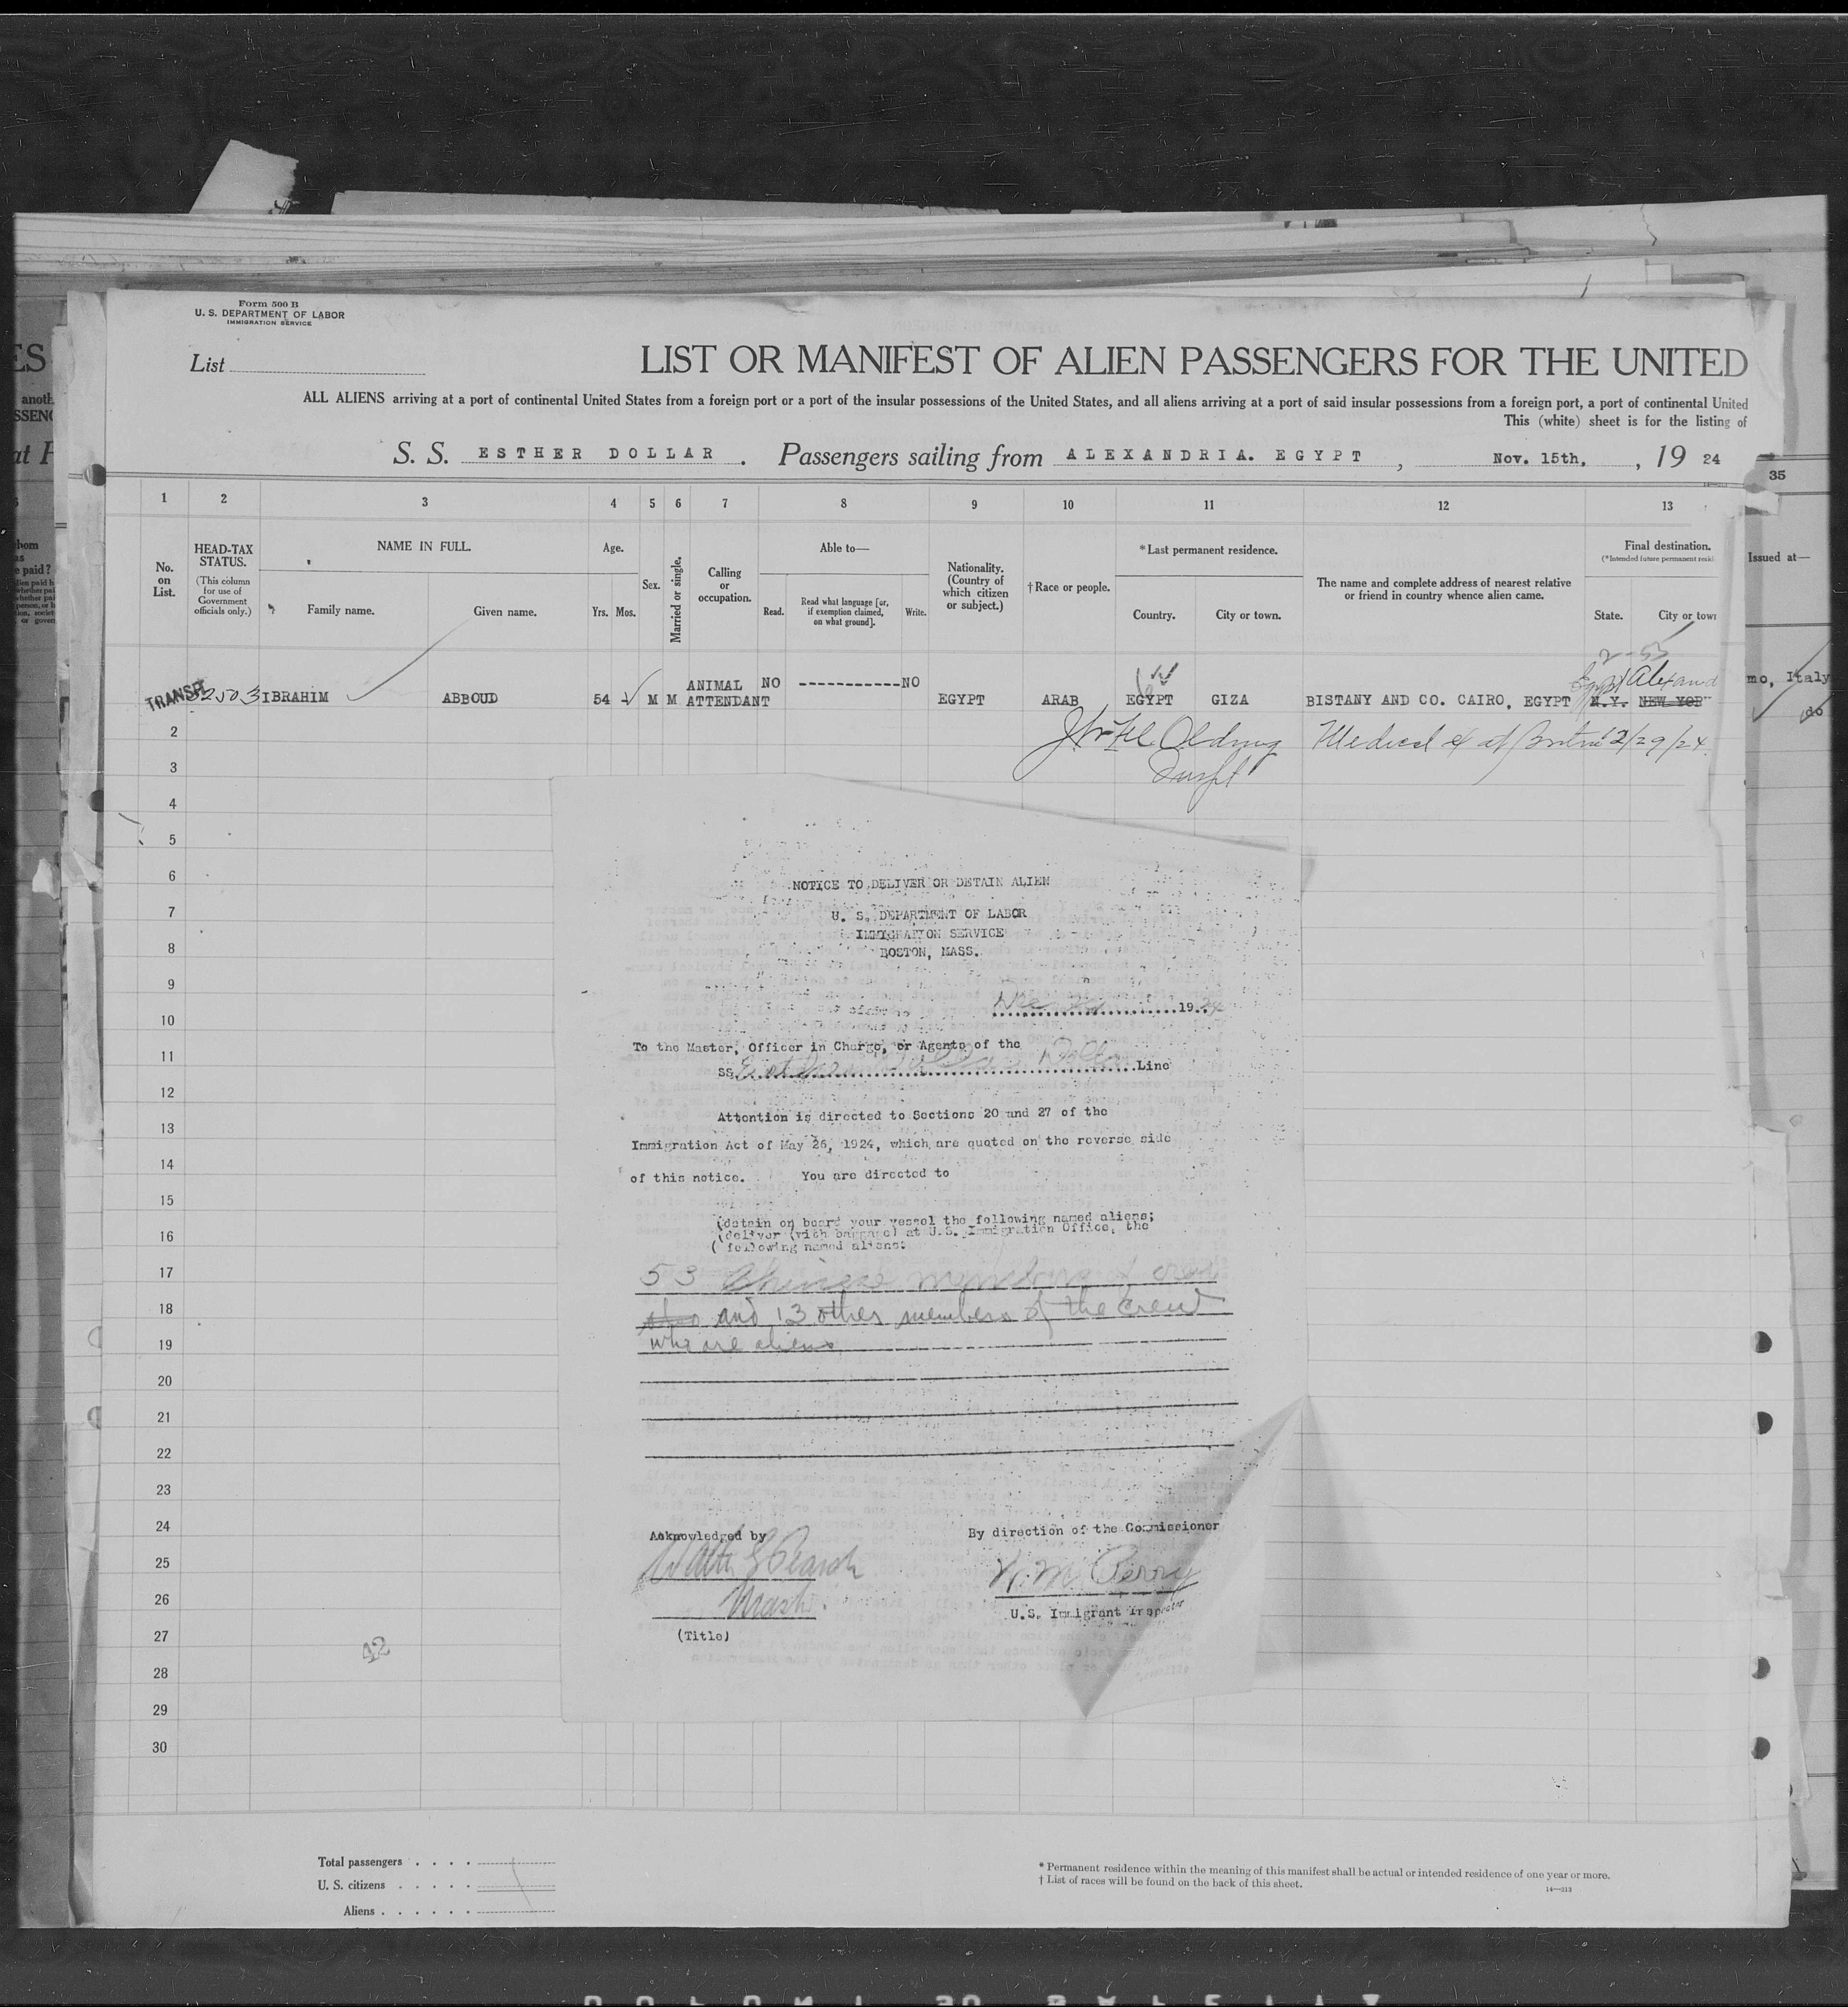 Form 500 B
U. S. DEPARTMENT OF LABOR
IMMIGRATION SERVICE
List
LIST OR MANIFEST OF ALIEN PASSENGERS FOR THE UNITED
ALL ALIENS arriving at a port of continental United States from a foreign port or a port of the insular possessions of the United States, and all aliens arriving at a port of said insular possessions from a foreign port, a port of continental United
This (white) sheet is for the listing of
S. S. ESTHER DOLLAR. Passengers sailing from ALEXANDRIA. EGYPT, Nov. 15th, , 19 24
35
1 2 3 4 5 6 7 8 9 10 11 12 13
No. on List.
HEAD-TAX STATUS.
(This column for use of Government officials only.)
NAME IN FULL.
Family name. Given name.
Age.
Yrs. Mos.
Sex.
Married or single.
Calling or occupation.
Able to—
Read. Read what language [or, if exemption claimed, on what ground]. Write.
Nationality. (Country of which citizen or subject.)
†Race or people.
*Last permanent residence.
Country. City or town.
The name and complete address of nearest relative or friend in country whence alien came.
Final destination.
(*Intended future permanent resid
State. City or town
Issued at—
TRANSIT 32503 IBRAHIM ABBOUD 54 M M ANIMAL ATTENDANT NO ------------NO EGYPT ARAB EGYPT GIZA BISTANY AND CO. CAIRO, EGYPT N.Y. NEW YOR
Egypt Alexand
mo, Italy
do
Medical 2/29/24
2
3
4
5
6
7
8
9
10
11
12
13
14
15
16
17
18
19
20
21
22
23
24
25
26
27
28
29
30
NOTICE TO DELIVER OR DETAIN ALIEN
U. S. DEPARTMENT OF LABOR
IMMIGRATION SERVICE
BOSTON, MASS.
Dec 19 24
To the Master, Officer in Charge, or Agents of the
SS Dollar Line
Attention is directed to Sections 20 and 27 of the
Immigration Act of May 26, 1924, which are quoted on the reverse side
of this notice. You are directed to
(detain on board your vessel the following named aliens;
(deliver (with baggage) at U.S. Immigration Office, the
( following named aliens:
53 Chinese members of crew
and 13 other members of the crew
who are aliens
Acknowledged by
By direction of the Commissioner
Perry
U.S. Immigrant Inspector
(Title)
42
Total passengers
U. S. citizens
Aliens
* Permanent residence within the meaning of this manifest shall be actual or intended residence of one year or more.
† List of races will be found on the back of this sheet.
14—213